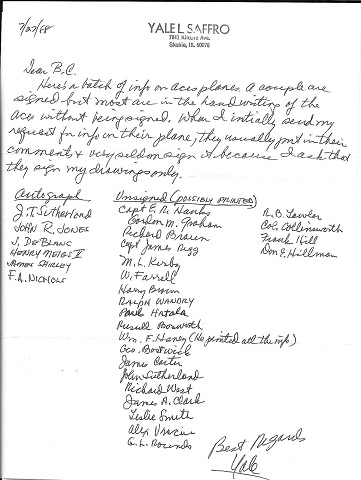 7/27/88
YALE L. SAFFRO
7842 Kildare Ave.
Skokie, Ill. 60076
Dear B.C.
Here's a batch of info on aces planes. A couple are
signed but most are in the handwriting of the
aces without being signed. When I initially send my
request for info on their plane, they usually put in their
comments & very seldom sign it because I ask that
they sign my drawings only.
Autograph
J. T. Sutherland
JOHN R. JONES
J. DEBLANC
HENRY MEIGS II
JAMES SHIRLEY
F. A. NICHOLS
Unsigned (POSSIBLY PRINTED)
Capt E. R. Hanks
Gordon M. Graham
Richard Braun
Capt James Rigg
M. L. Kirby
W. Farrell
Harry Brown
RALPH WANDRY
Paul Hatala
Russell Bosworth
Wm. F. Haney (He printed all the info)
Geo. Bostwick
James Carter
John Sutherland
Richard West
James A. Clark
Leslie Smith
Alex Vraciu
G. L. Rounds
R. B. Lawler
Col. Collinsworth
Frank Hill
Don E. Hillman
Best Regards
Yale